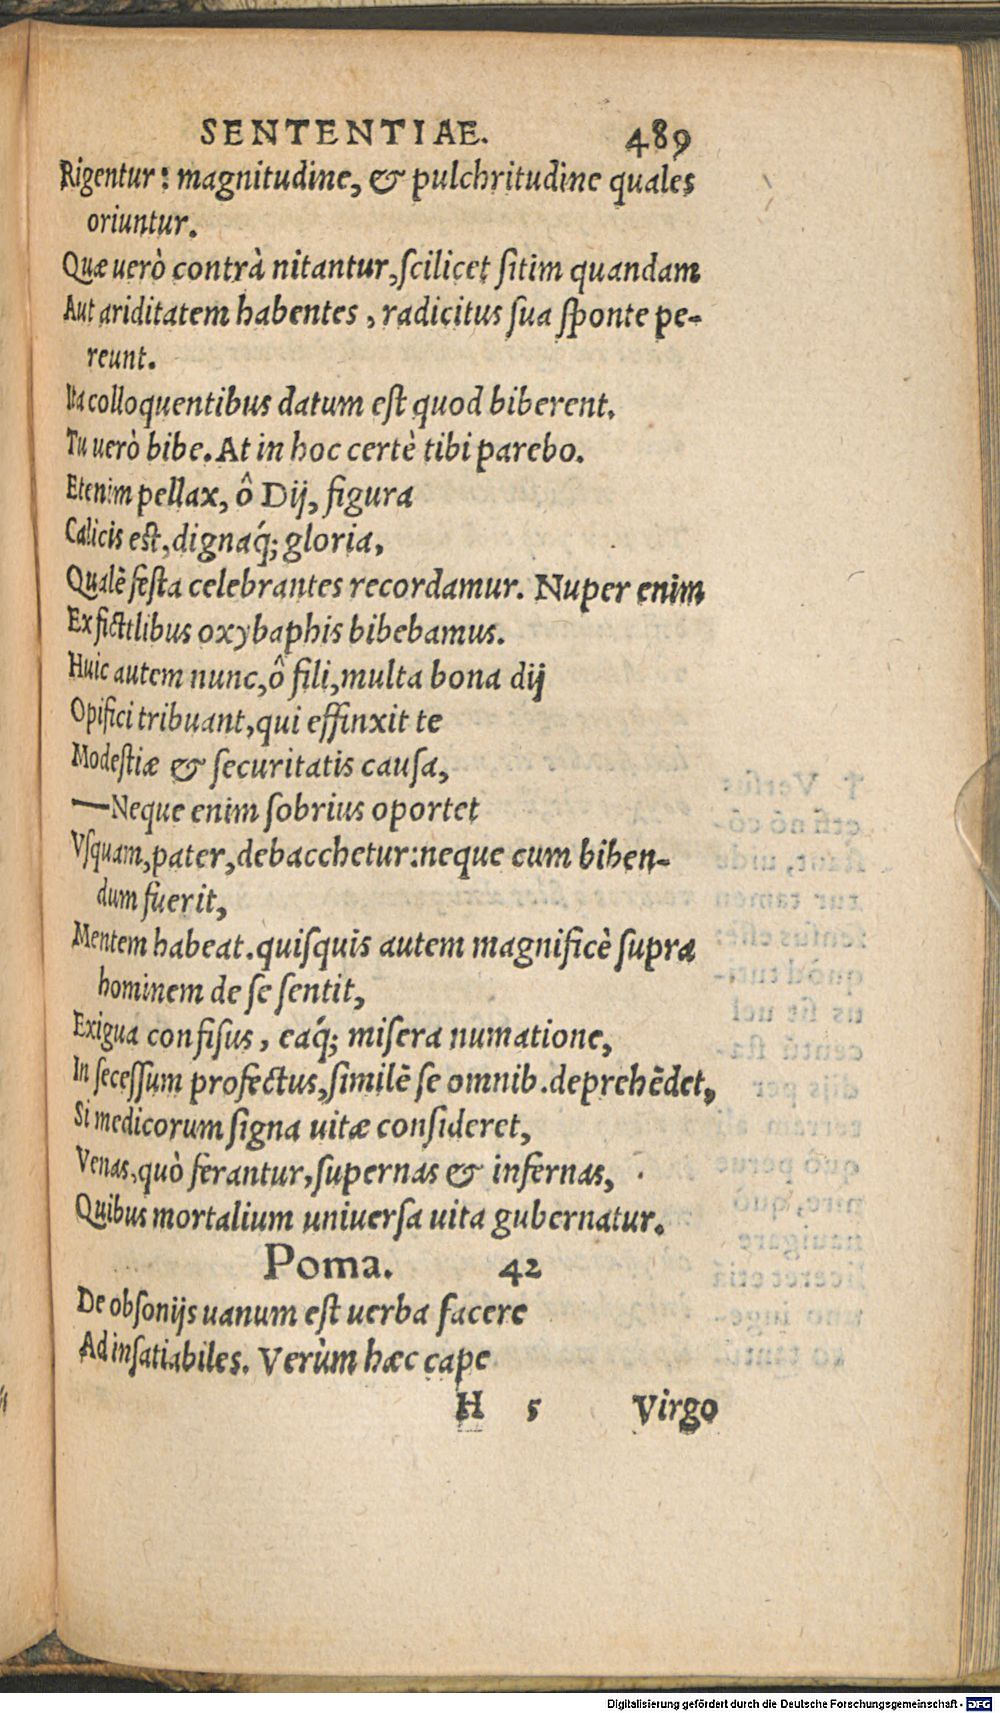 SENTENTIAE. 489
Rigentur: magnitudine, & pulchritudine quales
oriuntur.
Quæ uerò contrà nitantur, ſcilicet ſitim quandam
Aut ariditatem habentes, radicitus ſua ſponte pe-
reunt.
Ita colloquentibus datum eſt quod biberent.
Tu uerò bibe. At in hoc certè tibi parebo.
Etenim pellax, ô Dij, figura
Calicis eſt, dignaq́; gloria,
Qualē feſta celebrantes recordamur. Nuper enim
Ex fictilibus oxybaphis bibebamus.
Huic autem nunc, ô fili, multa bona dij
Opifici tribuant, qui effinxit te
Modeſtiæ & ſecuritatis cauſa,
—Neque enim ſobrius oportet
Vſquam, pater, debacchetur: neque cum biben-
dum fuerit,
Mentem habeat. quiſquis autem magnificè ſupra
hominem de ſe ſentit,
Exigua confiſus, eaq́; miſera numatione,
In ſeceſſum profectus, ſimilē ſe omnib. deprehēdet,
Si medicorum ſigna uitæ conſideret,
Venas, quò ferantur, ſupernas & infernas,
Quibus mortalium uniuerſa uita gubernatur.
Poma. 42
De obſonijs uanum eſt uerba facere
Ad inſatiabiles. Verùm hæc cape
H 5 Virgo
Digitalisierung gefördert durch die Deutsche Forschungsgemeinschaft - DFG